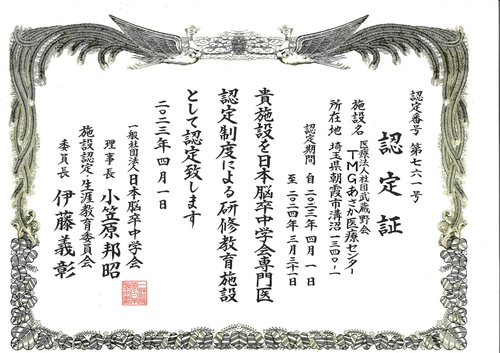 認定番号 第七六一号
認定証
施設名 医療法人社団武蔵野会
TMGあさか医療センター
所在地 埼玉県朝霞市溝沼一三四〇-一
認定期間 自 二〇二三年 四月 一日
至 二〇二四年 三月三十一日
貴施設を日本脳卒中学会専門医
認定制度による研修教育施設
として認定致します
二〇二三年 四月 一日
一般社団法人日本脳卒中学会
理事長 小笠原邦昭
施設認定・生涯教育委員会
委員長 伊藤義彰